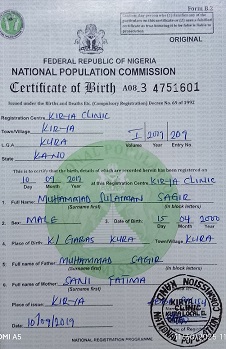 Form B.2
ORIGINAL
FEDERAL REPUBLIC OF NIGERIA
NATIONAL POPULATION COMMISSION
Certificate of Birth A08.3 4751601
Issued under the Births and Deaths Etc. (Compulsory Registration) Decree No 69 of 1992
Registration Centre KIRYA CLINIC
Town/Village KIRYA
L.G.A KURA I 2019 209
Volume Year Entry No.
State KANO
This is to certify that the birth, details of which are recorded herein has been registered on
10 09 2019 at this Registration Centre KIRYA CLINIC
Day Month Year
1. Full Name: MUHAMMAD SULAIMAN SAGIR
(Surname first) (In block letters)
2. Sex MALE 3. Date of Birth: 15 04 2000
Day Month Year
4. Place of Birth K/ GABAS KURA Town/Village KURA
5. Full name of Father: MUHAMMAD SAGIR
(Surname first) (In block letters)
6. Full name of Mother: SANI FATIMA
(Surname first) (In block letters)
Place of issue: KIRYA
10/09/2019
Date
KIRYA
CLINIC
KURA LOCAL
NATIONAL POPULATION COMMISSION KANO
NATIONAL REGISTRATION PROGRAMME